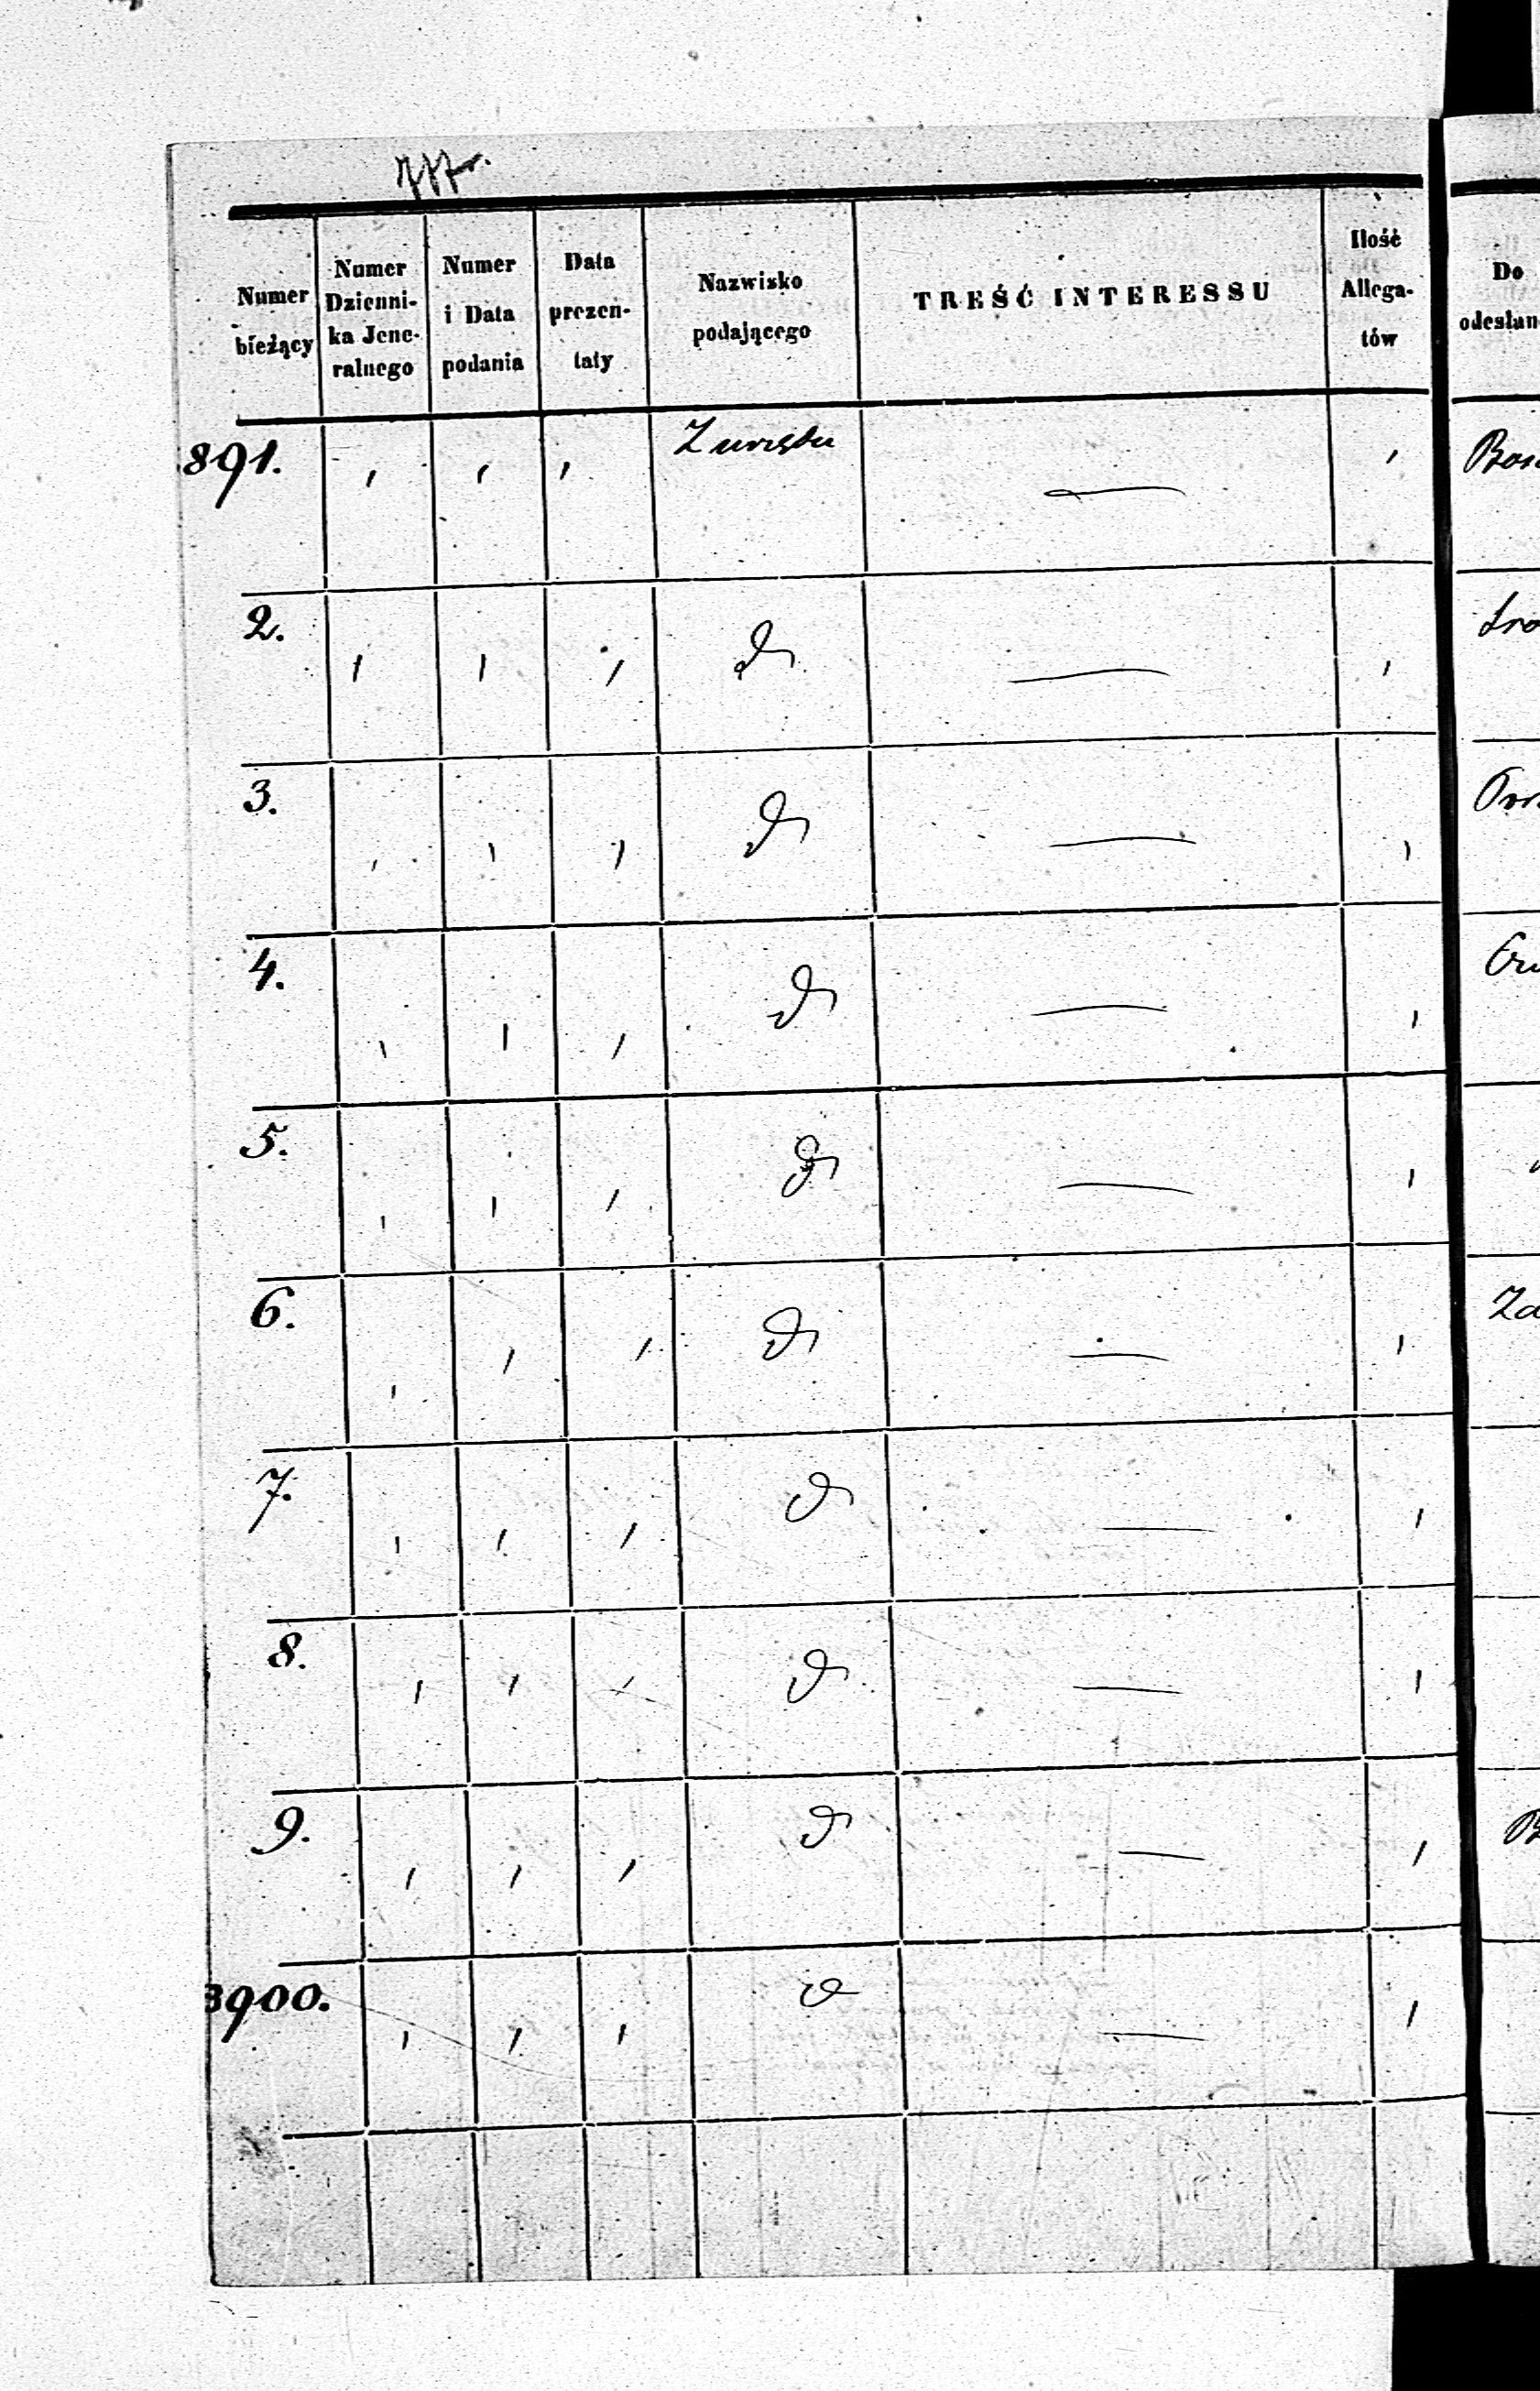 Numer bieżący
Numer Dzienni-
ka Jene-
ralnego
Numer
i Data
podania
Data
prezen-
taty
Nazwisko
podającego
TREŚĆ INTERESSU
Ilość
Allega-
tów
Do
odesłan
891. Z urzędu —
2. d —
3. d —
4. d —
5. d —
6. d —
7. d —
8. d —
9. d —
3900. d —